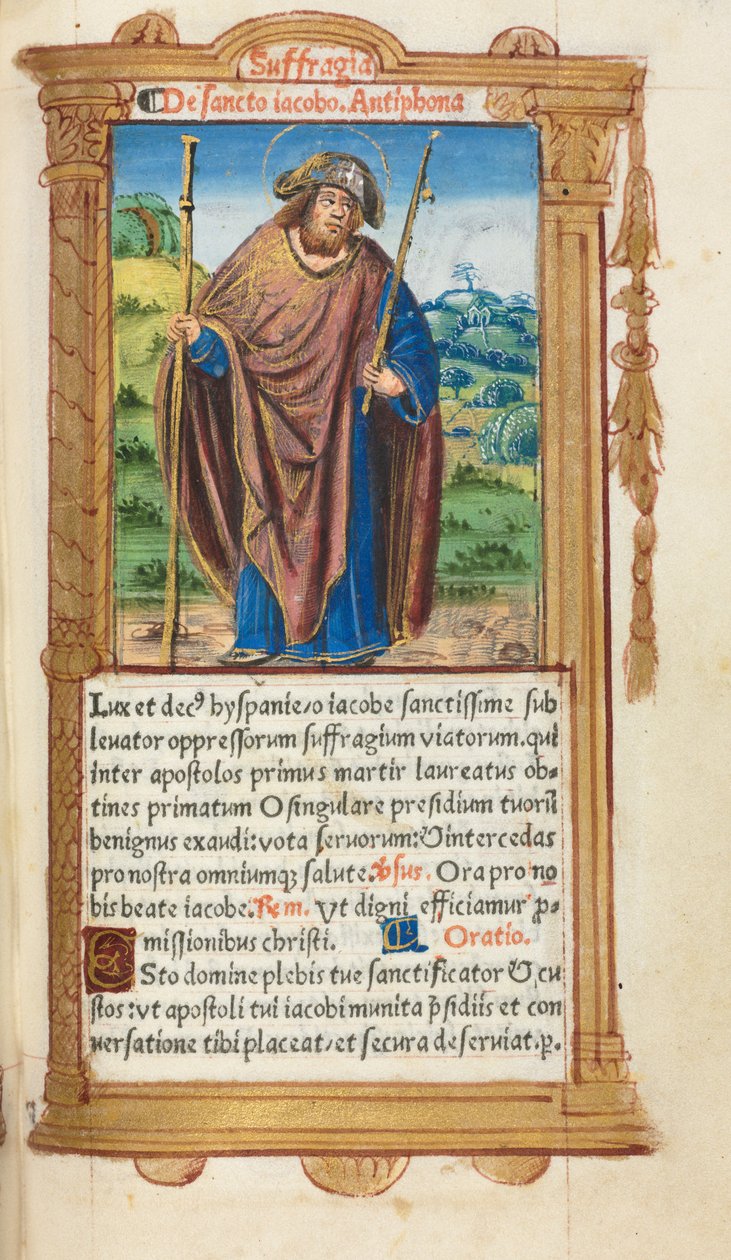 Suffragia
De sancto iacobo. Antiphona
Lux et decꝰ hyſpanie/o iacobe ſanctiſſime ſub
leuator oppreſſorum ſuffragium viatorum.qui
inter apoſtolos primus martir laureatus ob⸗
tines primatum O ſingulare preſidium tuorū
benignus exaudi:vota ſeruorum:⁊ intercedas
pro noſtra omniumqꝫ ſalute. v̄ſus. Ora pro no
bis beate iacobe. Rem. Vt digni efficiamur ꝓ⸗
miſſionibus chriſti. Oratio.
ESto domine plebis tue ſanctificator ⁊ cu
ſtos:vt apoſtoli tui iacobi munita p̄ſidiis et con
uerſatione tibi placeat/et ſecura deſeruiat.ꝑ.